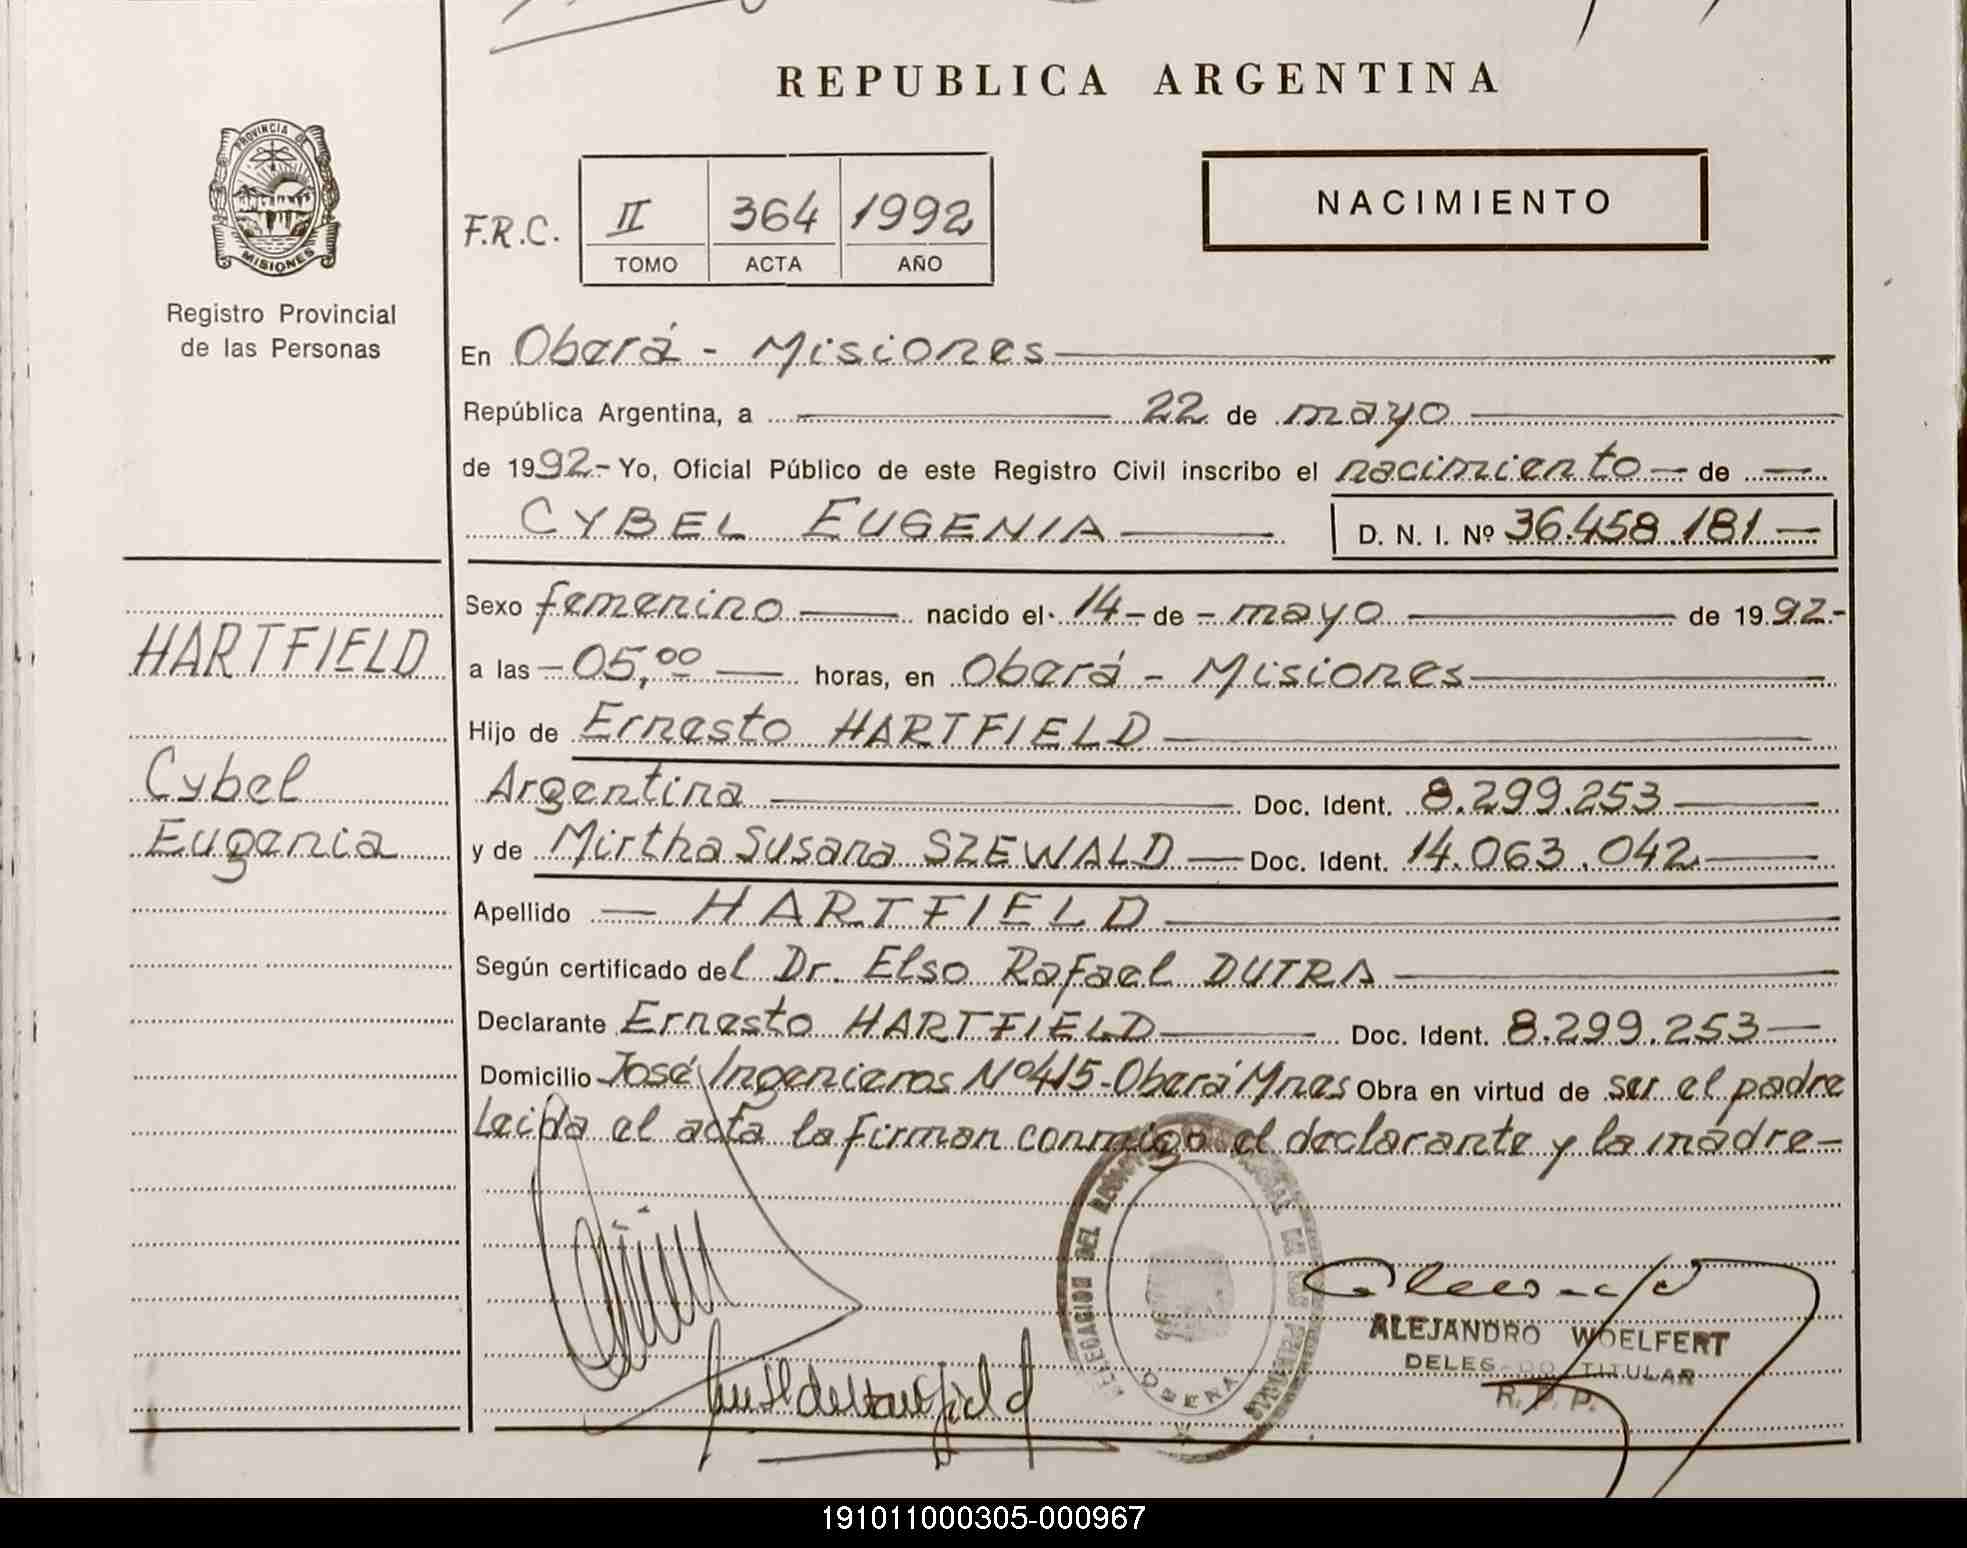 REPUBLICA ARGENTINA
PROVINCIA DE
MISIONES
Registro Provincial
de las Personas
NACIMIENTO
F.R.C. II 364 1992
TOMO ACTA AÑO
En Oberá - Misiones
República Argentina, a 22 de mayo
de 1992.- Yo, Oficial Público de este Registro Civil inscribo el nacimiento de
CYBEL EUGENIA D. N. I. Nº 36.458.181
Sexo femenino nacido el 14 de mayo de 1992.-
HARTFIELD
a las 05,00 horas, en Oberá - Misiones
Hijo de Ernesto HARTFIELD
Cybel
Eugenia
Argentina Doc. Ident. 8.299.253
y de Mirtha Susana SZEWALD Doc. Ident. 14.063.042
Apellido HARTFIELD
Según certificado del Dr. Elso Rafael DUTRA
Declarante Ernesto HARTFIELD Doc. Ident. 8.299.253
Domicilio José Ingenieros Nº 415 - Oberá Mnes Obra en virtud de ser el padre
Leida el acta la firman conmigo el declarante y la madre
DELEGACION DEL
OBERA
ALEJANDRO WOELFERT
DELEGADO TITULAR
R. P. P.
191011000305-000967